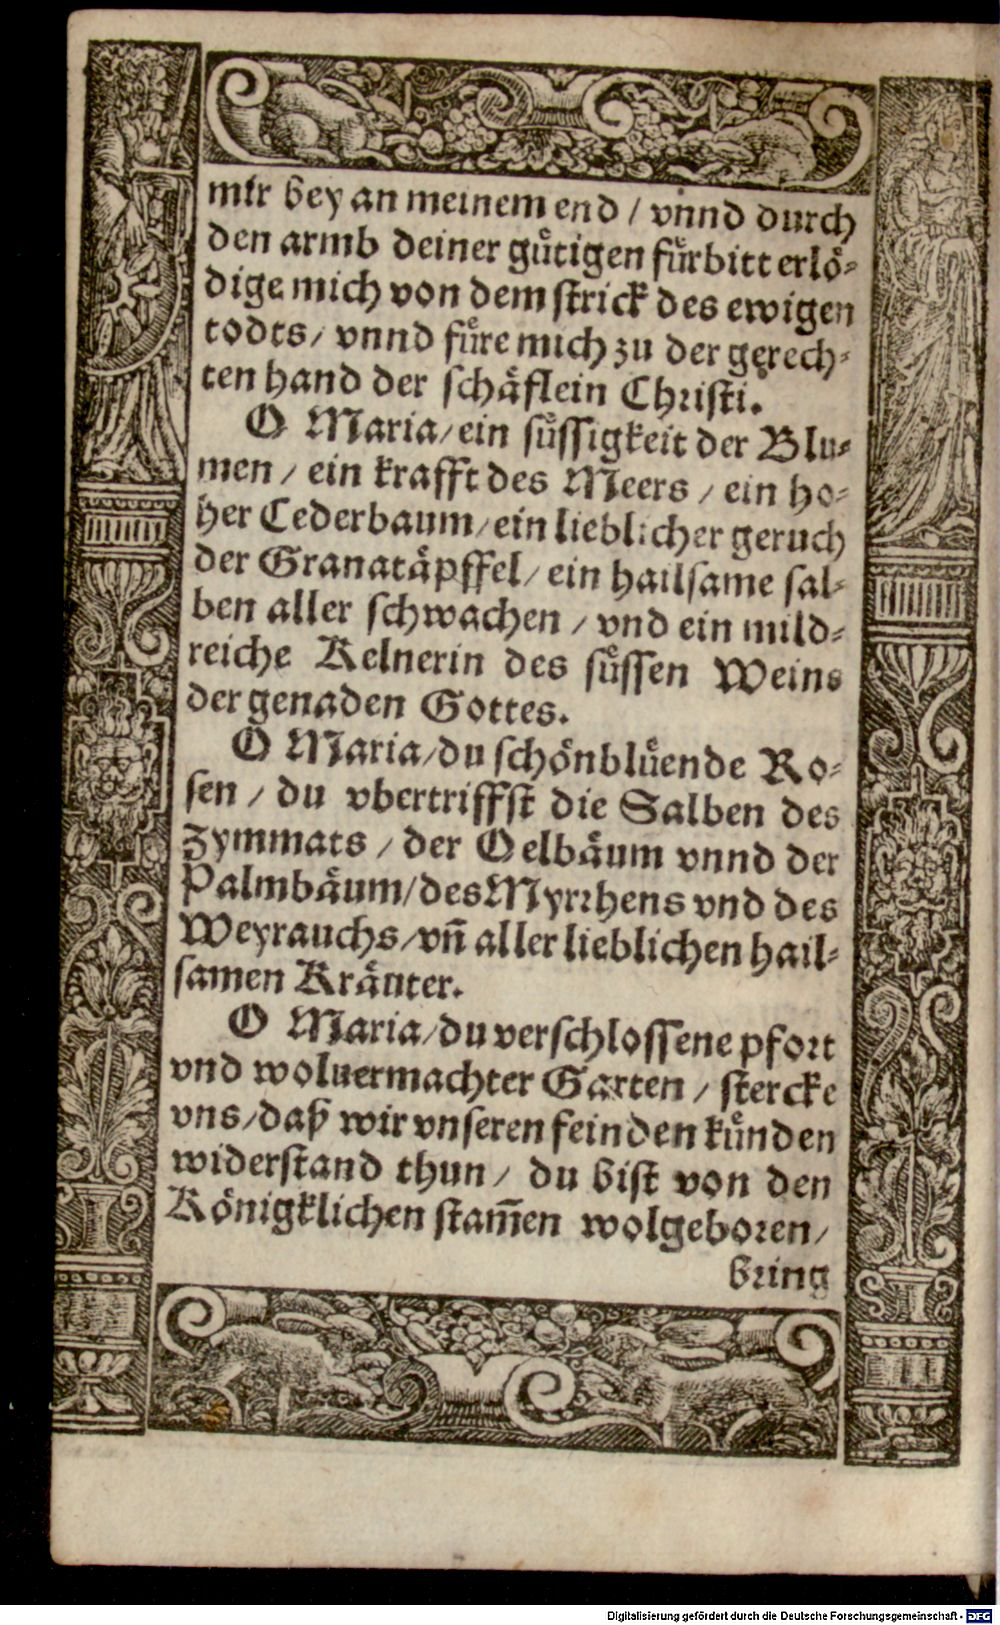 mir bey an meinem end / vnnd durch
den armb deiner gůtigen fůrbitt erlö⸗
dige mich von dem strick des ewigen
todts / vnnd fůre mich zu der gerech⸗
ten hand der schäflein Christi.
O Maria / ein sůssigkeit der Blu⸗
men / ein krafft des Meers / ein ho⸗
her Cederbaum / ein lieblicher geruch
der Granatäpffel / ein hailsame sal⸗
ben aller schwachen / vnd ein mild⸗
reiche Kelnerin des sůssen Weins
der genaden Gottes.
O Maria / du schönblůende Ro⸗
sen / du vbertriffst die Salben des
zymmats / der Oelbäum vnnd der
Palmbäum / des Myrrhens vnd des
Weyrauchs / vn̄ aller lieblichen hail⸗
samen Kräuter.
O Maria / du verschlossene pfort
vnd wolvermachter Garten / stercke
vns / daß wir vnseren feinden kůnden
widerstand thun / du bist von den
Königklichen stam̄en wolgeboren /
bring
Digitalisierung gefördert durch die Deutsche Forschungsgemeinschaft - DFG